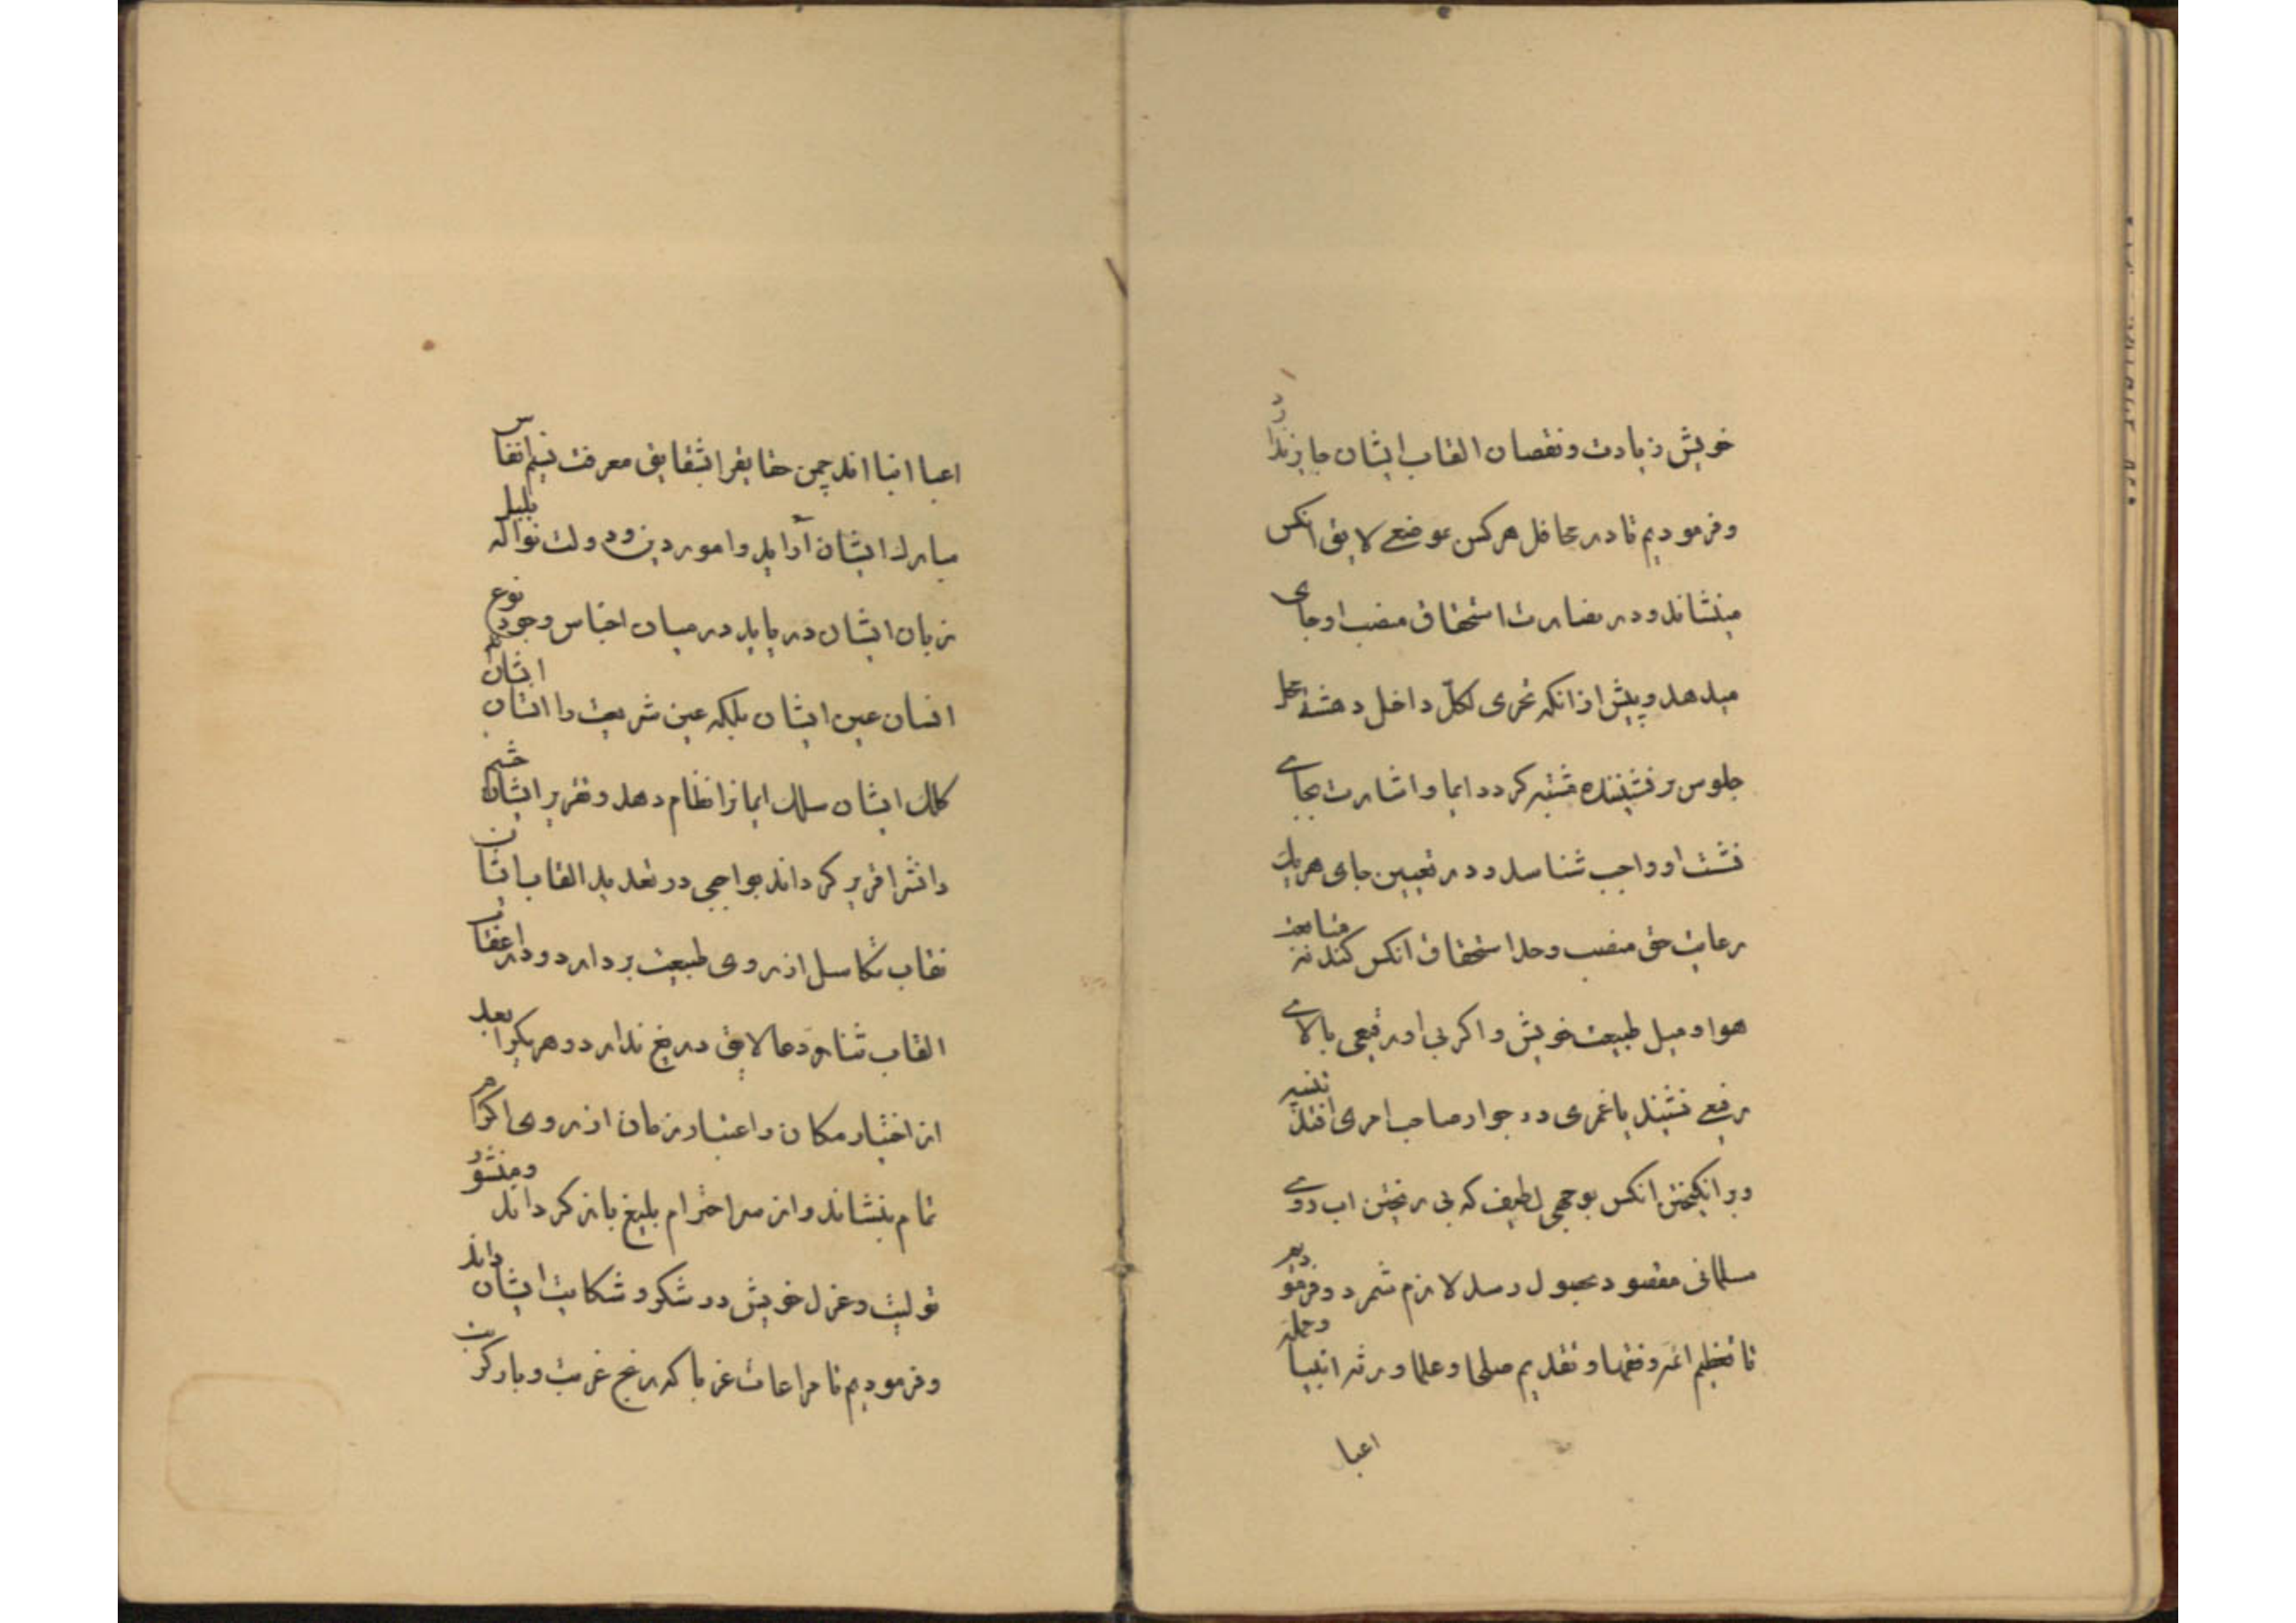 خویش زیادت و نقصان القاب ایشان جایز ندارد
و فرمودیم تا در محافل هر کس بموضعی لایق انکس
بنشاند و در بصارت استحقاق منصب او جای
میدهد و پیش از انکه تحری لکل داخل دهشة محل
جلوس بر نشیننده مشتبه کردد ایما و اشارت بجای
نشست او واجب شناسد و در تعیین جای هر یک
رعایت حق منصب و حد استحقاق انکس کند نه متابعت
هوا و میل طبیعت خویش و اکر بی او رفیعی بالای
رفیعی نشیند یا غمری در جوار صاحب امری افتد
و بر انکیختن انکس بوجهی لطیف که بی ریختن اب روی
مسلمانی مقصود بحصول رسد لازم شمرد و فرمودیم
تا تعظیم ائمه و فقها و تقدیم صلحا و علما ورثه انبیا و جمله
اعبا
اعبا انبیا اند چمن حقایق را بشقایق معرفت نسیم انفاس
مبارک ایشان آراید و امور دین و دولت نوا که بلبل
زبان ایشان در یابد در میان اجناس وجود نوع
انسان عین ایشان بلکه عین شریعت را انسان ایشانند
کلک ایشان سلک ایمانرا نظام دهد و تقریر ایشان چشم
دانش را قریر کرداند بواجبی در تعدید القاب ایشان
نقاب تکاسل از روی طبیعت بردارد و در اعقاب
القاب ثنا و دعا لایق دریغ ندارد و هر یکرا بعد
از اختیار مکان و اعتبار زمان از روی اکرام
تمام بنشاند و از سر احترام بلیغ باز کرداند و منشور
تولیت و عزل خویش در شکر و شکایت ایشان داند
و فرمودیم تا مراعات غربا که رنج غربت و بار کربت